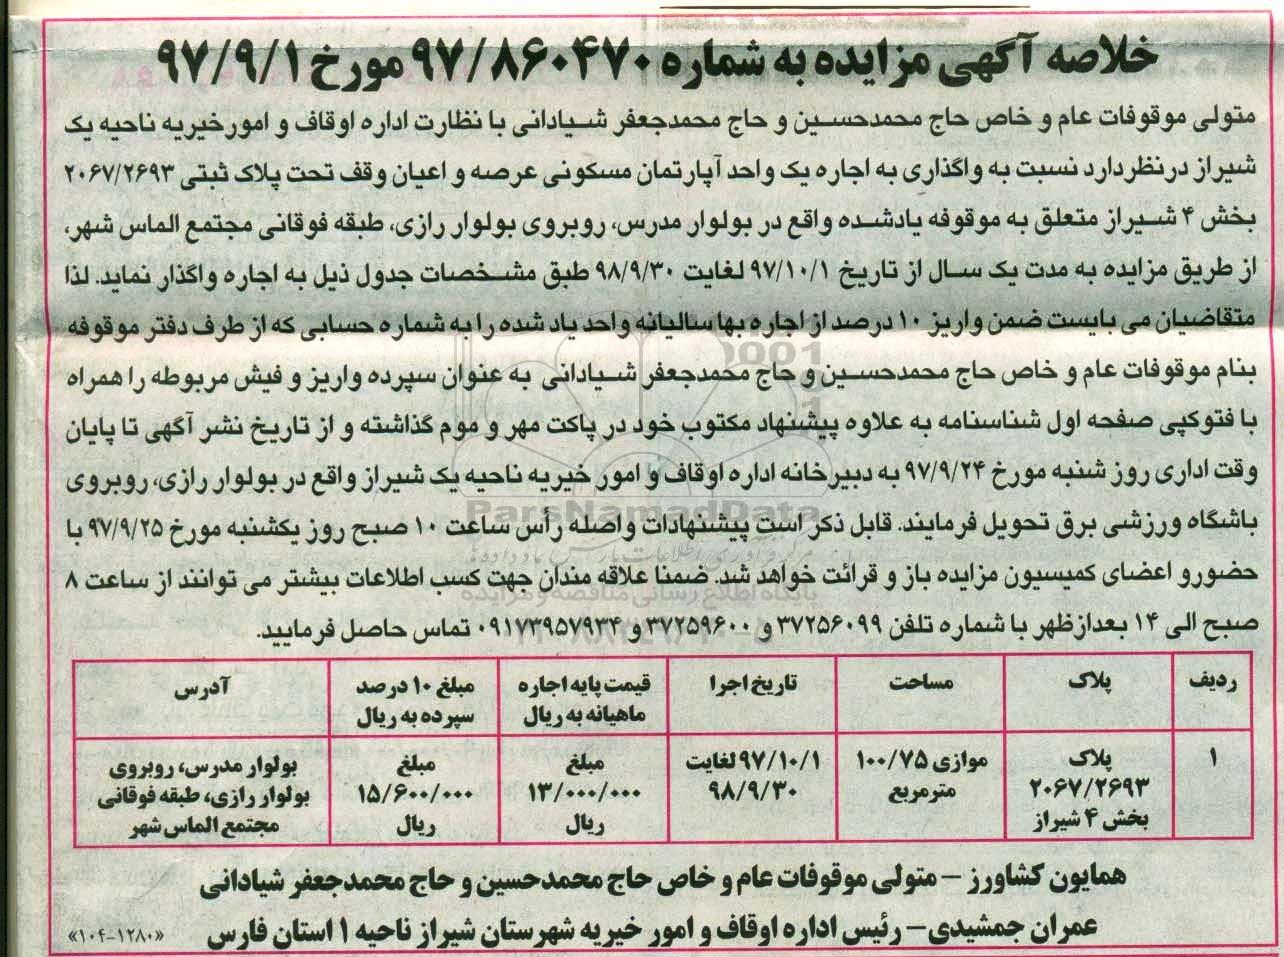 خلاصه آگهی مزایده به شماره ۹۷/۸۶۰۴۷۰ مورخ ۹۷/۹/۱
متولی موقوفات عام و خاص حاج محمدحسین و حاج محمدجعفر شیادانی با نظارت اداره اوقاف و امورخیریه ناحیه یک
شیراز درنظردارد نسبت به واگذاری به اجاره یک واحد آپارتمان مسکونی عرصه و اعیان وقف تحت پلاک ثبتی ۲۰۶۷/۲۶۹۳
بخش ۴ شیراز متعلق به موقوفه یادشده واقع در بولوار مدرس، روبروی بولوار رازی، طبقه فوقانی مجتمع الماس شهر،
از طریق مزایده به مدت یک سال از تاریخ ۹۷/۱۰/۱ لغایت ۹۸/۹/۳۰ طبق مشخصات جدول ذیل به اجاره واگذار نماید. لذا
متقاضیان می بایست ضمن واریز ۱۰ درصد از اجاره بها سالیانه واحد یاد شده را به شماره حسابی که از طرف دفتر موقوفه
بنام موقوفات عام و خاص حاج محمدحسین و حاج محمدجعفر شیادانی به عنوان سپرده واریز و فیش مربوطه را همراه
با فتوکپی صفحه اول شناسنامه به علاوه پیشنهاد مکتوب خود در پاکت مهر و موم گذاشته و از تاریخ نشر آگهی تا پایان
وقت اداری روز شنبه مورخ ۹۷/۹/۲۴ به دبیرخانه اداره اوقاف و امور خیریه ناحیه یک شیراز واقع در بولوار رازی، روبروی
باشگاه ورزشی برق تحویل فرمایند. قابل ذکر است پیشنهادات واصله رأس ساعت ۱۰ صبح روز یکشنبه مورخ ۹۷/۹/۲۵ با
حضورو اعضای کمیسیون مزایده باز و قرائت خواهد شد. ضمنا علاقه مندان جهت کسب اطلاعات بیشتر می توانند از ساعت ۸
صبح الی ۱۴ بعدازظهر با شماره تلفن ۳۷۲۵۶۰۹۹ و ۳۷۲۵۹۶۰۰ و ۰۹۱۷۳۹۵۷۹۳۴ تماس حاصل فرمایید.
ردیف پلاک مساحت تاریخ اجرا قیمت پایه اجاره ماهیانه به ریال مبلغ ۱۰ درصد سپرده به ریال آدرس
۱ پلاک ۲۰۶۷/۲۶۹۳ بخش ۴ شیراز موازی ۱۰۰/۷۵ مترمربع ۹۷/۱۰/۱ لغایت ۹۸/۹/۳۰ مبلغ ۱۳/۰۰۰/۰۰۰ ریال مبلغ ۱۵/۶۰۰/۰۰۰ ریال بولوار مدرس، روبروی بولوار رازی، طبقه فوقانی مجتمع الماس شهر
همایون کشاورز - متولی موقوفات عام و خاص حاج محمدحسین و حاج محمدجعفر شیادانی
عمران جمشیدی - رئیس اداره اوقاف و امور خیریه شهرستان شیراز ناحیه ۱ استان فارس
«۱۰۴-۱۲۸۰»
ParsNamadData
پایگاه اطلاع رسانی مناقصه و مزایده